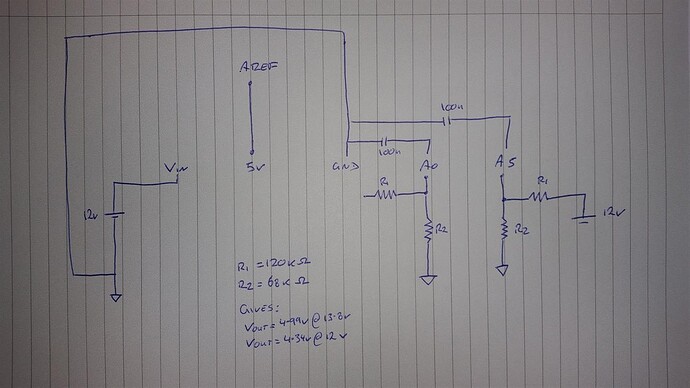 AREF
100n
100n
VIN
5V
GND
A0
A5
R1
R1
12V
R2
R2
12V
R1 = 120K Ω
R2 = 68K Ω
GIVES:
VOUT = 4.99V @ 13.8V
VOUT = 4.34V @ 12V